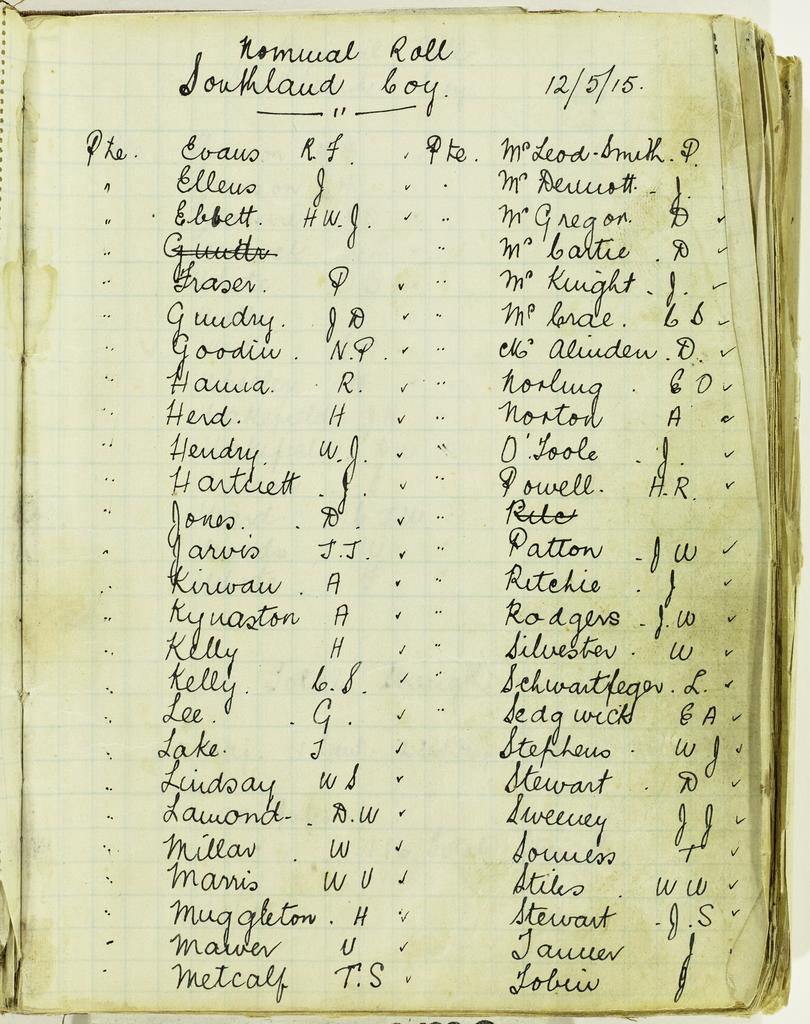 Nominal Roll
Southland Coy. 12/5/15.
— " —
Pte. Evans R. F. ✓ Pte. McLeod-Smith. P.
" Ellens J ✓ " McDermott. J.
" Ebbett. H W. J. ✓ " McGregor. D ✓
" " McCartie . D ✓
" Fraser. P ✓ " McKnight . J. ✓
" Gundry. J D ✓ " McCrae. C S ✓
" Goodin . N. P. ✓ " McAlinden. D. ✓
" Hanna. R. ✓ " Norling . E O ✓
" Herd. H ✓ " Norton A ✓
" Hendry. W. J. ✓ " O'Toole . J. ✓
" Hartnett . J. ✓ " Powell. H. R. ✓
" Jones. D. ✓ "
" Jarvis T. T. ✓ " Patton - J W ✓
" Kirwan . A ✓ " Ritchie . J ✓
" Kynaston A ✓ " Rodgers - J. W ✓
" Kelly H ✓ " Silvester . W ✓
" Kelly. C. S. ✓ " Schwartfeger. L. ✓
" Lee. . G. ✓ " Sedgwick E A ✓
" Lake. J ✓ Stephens . W J ✓
" Lindsay W S ✓ Stewart . D ✓
" Lamond- . D. W ✓ Sweeney J J ✓
" Millar . W ✓ Souness T ✓
" Marris W V ✓ Stiles . W W ✓
" Muggleton . H ✓ Stewart - J. S ✓
" Mawer V ✓ Tanner J
" Metcalf T. S ✓ Tobin J